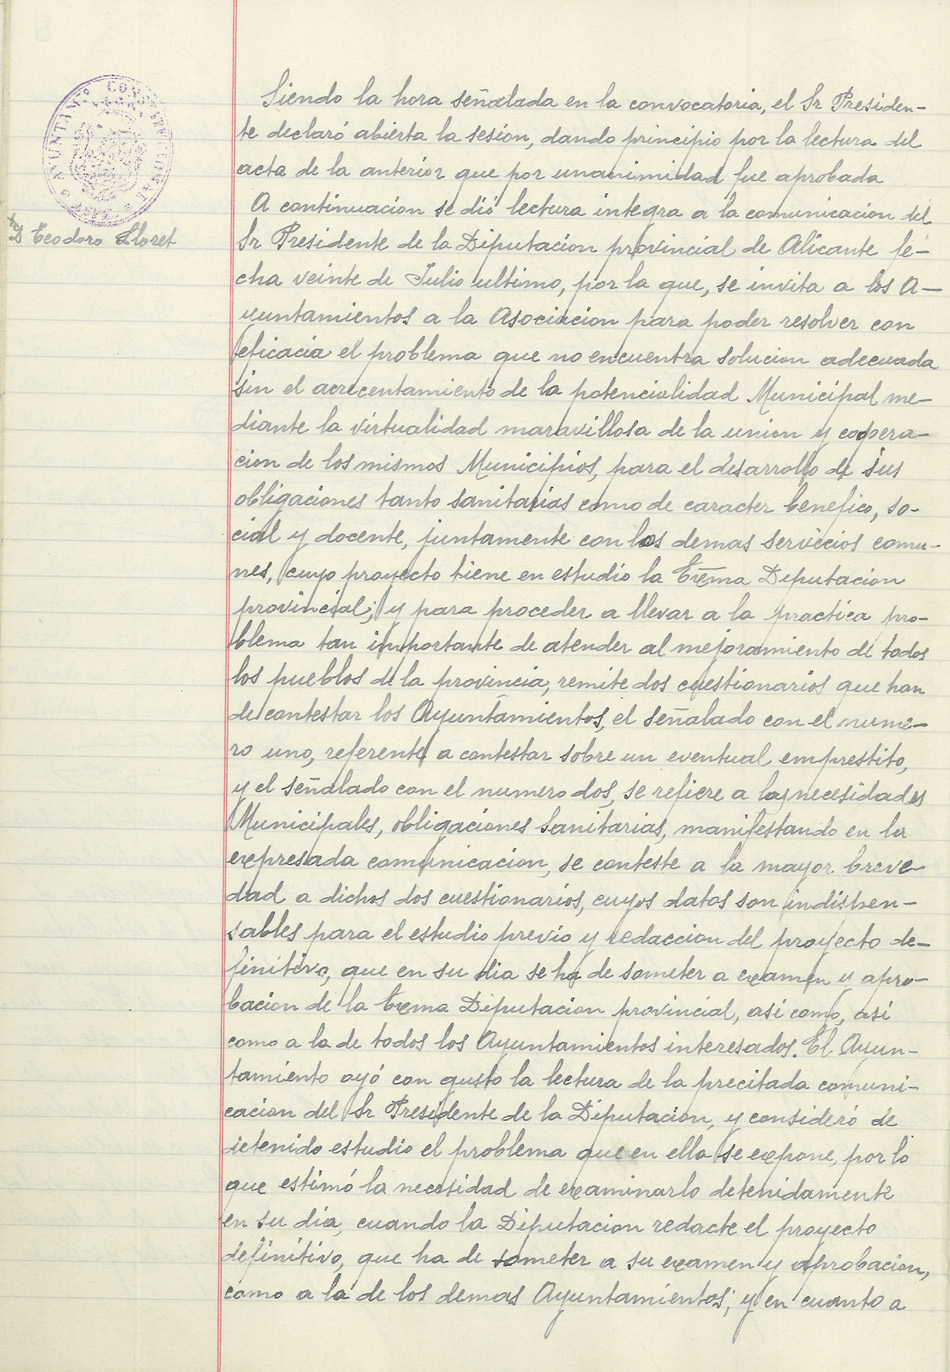 AYUNTAMTO CONSTITUCIONAL
D Teodoro Lloret
Siendo la hora señalada en la convocatoria, el Sr Presiden-
te declaró abierta la sesion, dando principio por la lectura del
acta de la anterior que por unanimidad fue aprobada
A continuacion se dió lectura integra a la comunicacion del
Sr Presidente de la Diputacion provincial de Alicante fe-
cha veinte de Julio ultimo, por la que, se invita a los A-
yuntamientos a la Asociacion para poder resolver con
eficacia el problema que no encuentra solucion adecuada
sin el acrecentamiento de la potencialidad Municipal me-
diante la virtualidad maravillosa de la union y coopera-
cion de los mismos Municipios, para el desarrollo de sus
obligaciones tanto sanitarias como de caracter benefico, so-
cial y docente, juntamente con los demas servicios comu-
nes, cuyo proyecto tiene en estudio la Exma Diputacion
provincial; y para proceder a llevar a la practica pro-
blema tan importante de atender al mejoramiento de todos
los pueblos de la provincia, remite dos cuestionarios que han
de contestar los Ayuntamientos, el señalado con el nume-
ro uno, referente a contestar sobre un eventual emprestito,
y el señalado con el numero dos, se refiere a las necesidades
Municipales, obligaciones sanitarias, manifestando en la
expresada comunicacion, se conteste a la mayor breve-
dad a dichos dos cuestionarios, cuyos datos son indispen-
sables para el estudio previo y redaccion del proyecto de-
finitivo, que en su dia se ha de someter a examen y apro-
bacion de la Exma Diputacion provincial, asi como, asi
como a la de todos los Ayuntamientos interesados. El Ayun-
tamiento oyó con gusto la lectura de la precitada comuni-
cacion del Sr Presidente de la Diputacion, y consideró de
detenido estudio el problema que en ella se expone, por lo
que estimó la necesidad de examinarlo detenidamente
en su dia, cuando la Diputacion redacte el proyecto
definitivo, que ha de someter a su examen y aprobacion,
como a la de los demas Ayuntamientos; y en cuanto a